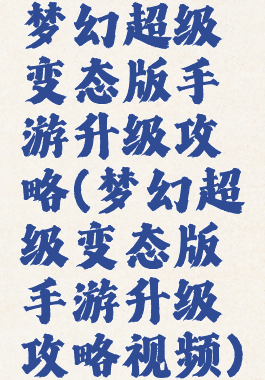 梦幻超级
变态版手
游升级攻
略(梦幻超
级变态版
手游升级
攻略视频)